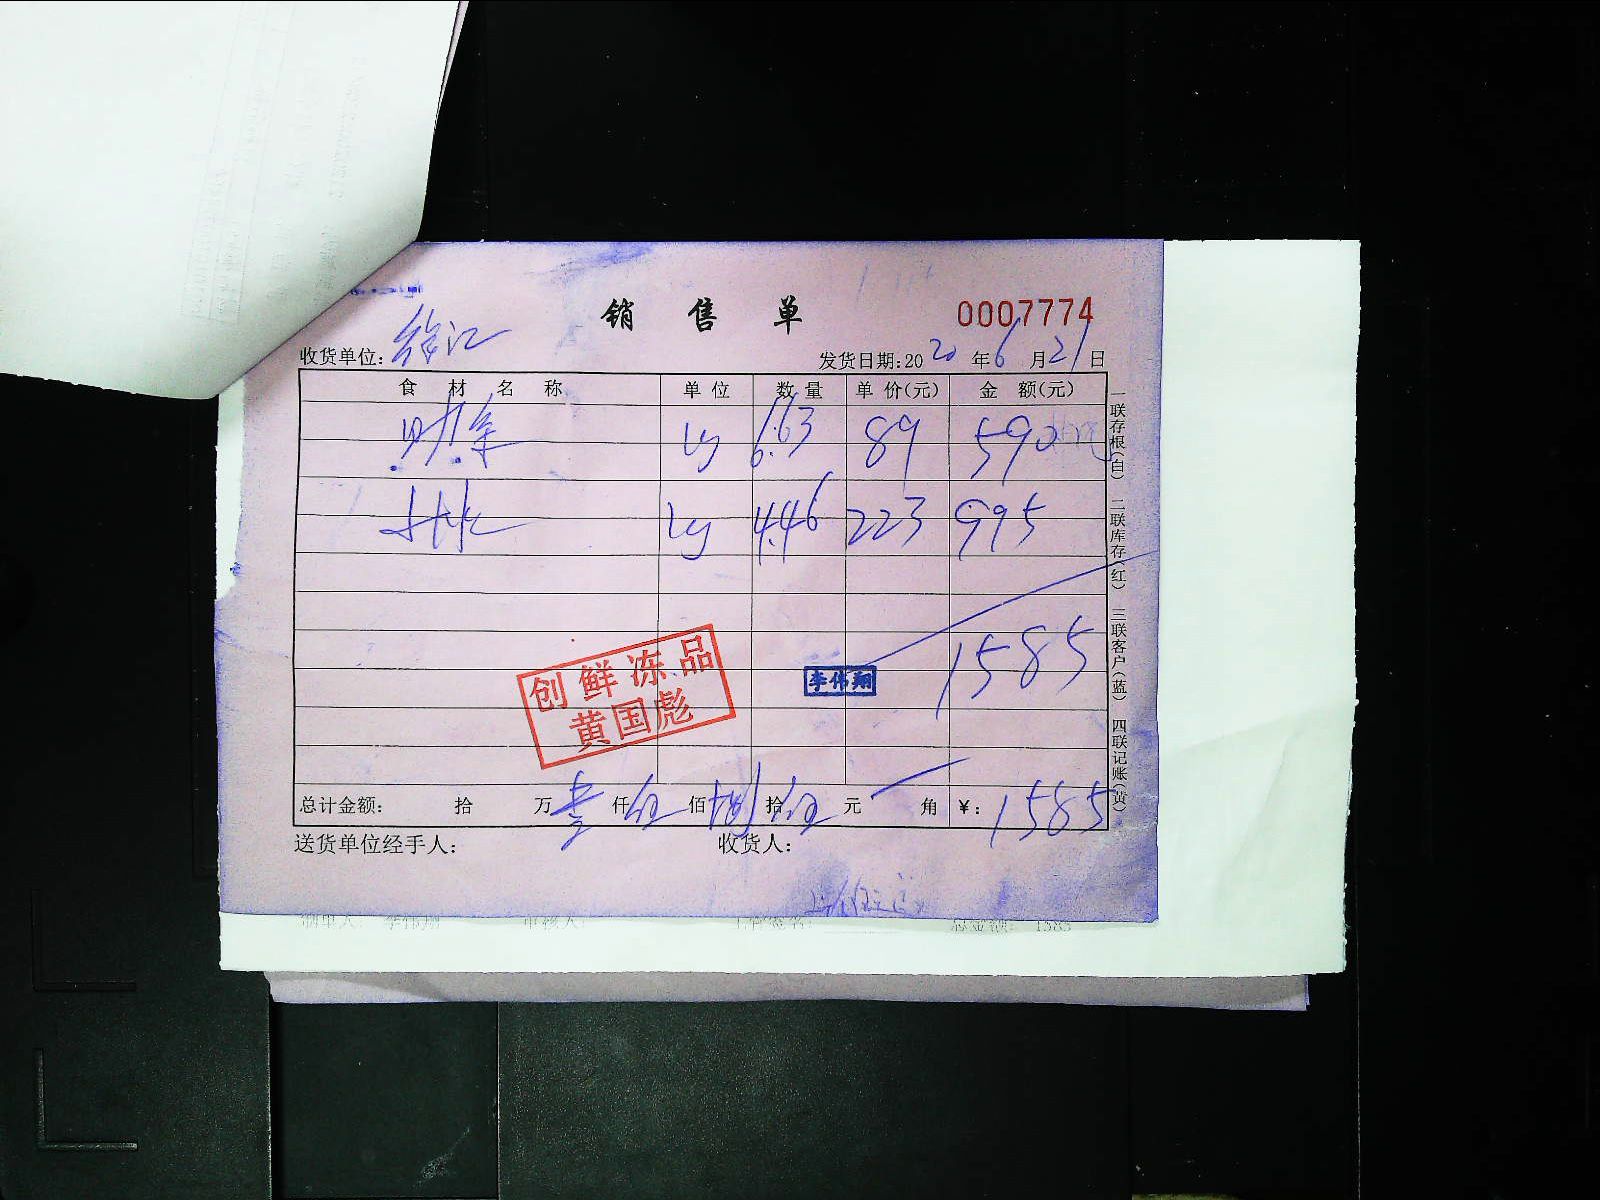 销售单
0007774
收货单位: 徐汇
发货日期:2020年6月21日
食材名称 单位 数量 单价(元) 金额(元)
kg 6.63 89 590
kg 4.46 223 995
1585
创鲜冻品
黄国彪
李伟翔
总计金额: 拾 万 壹 仟 伍 佰 捌 拾 伍 元 角 ¥: 1585
送货单位经手人: 收货人:
一联存根(白) 二联库存(红) 三联客户(蓝) 四联记账(黄)
制单人: 李伟翔 审核人: 总金额: 1585